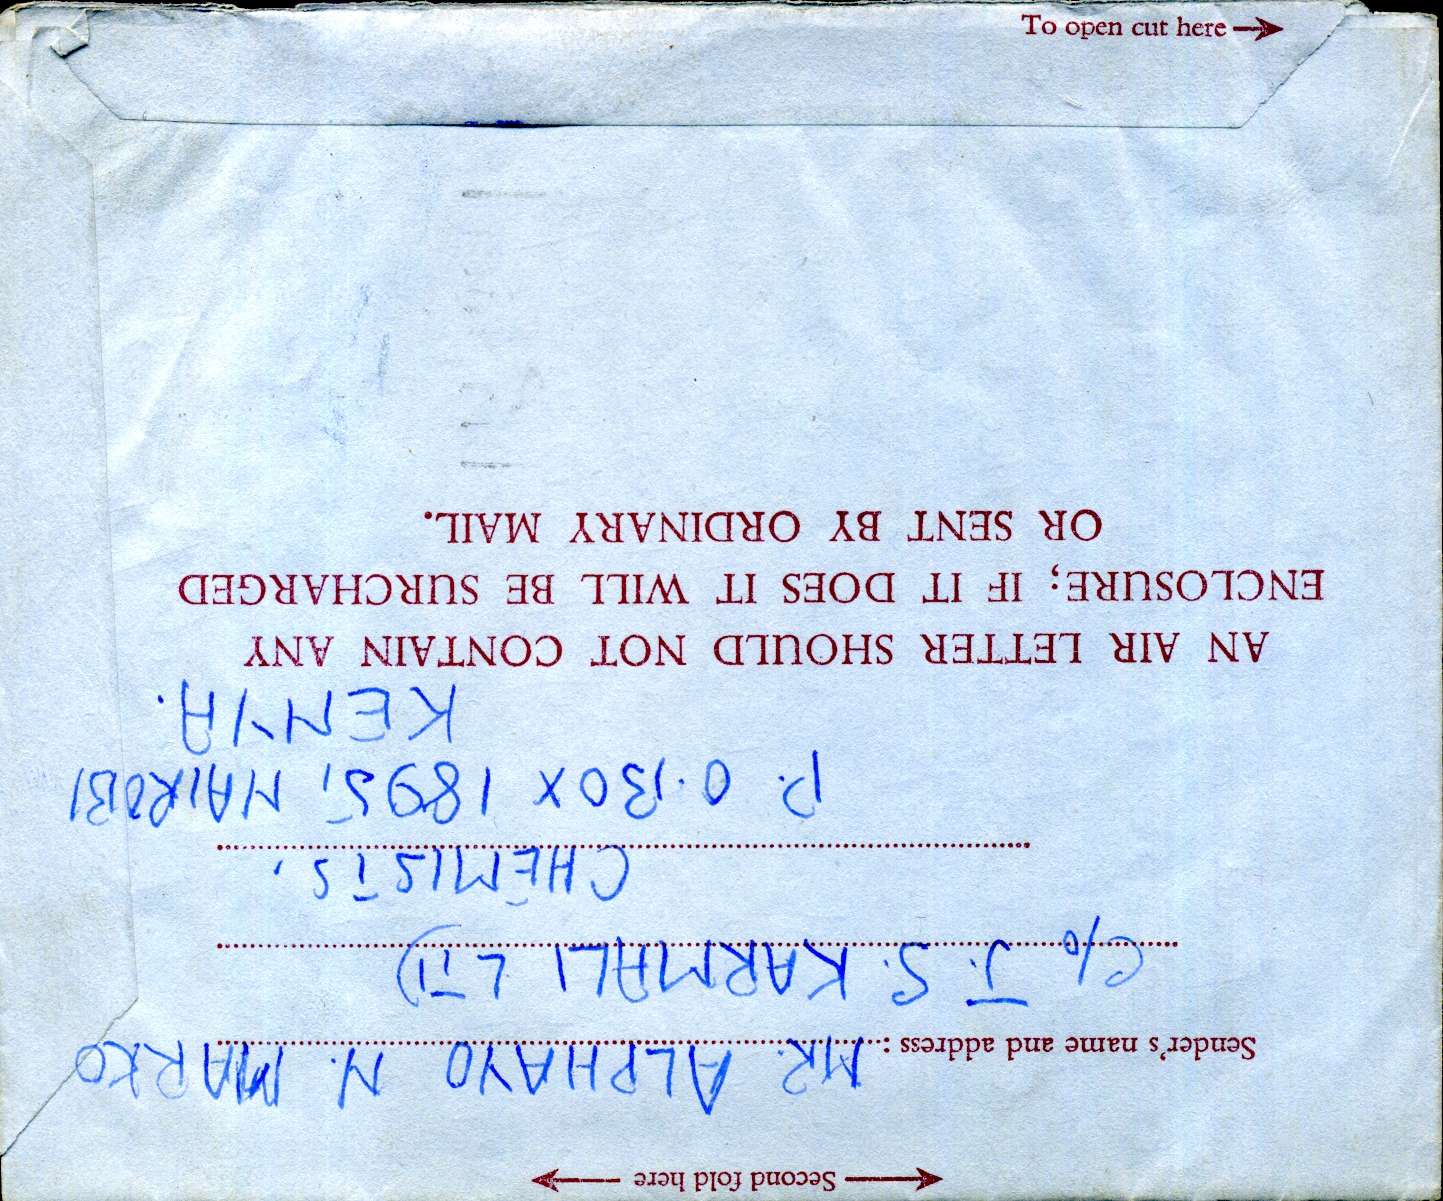 To open cut here
Second fold here
Sender's name and address : MR. ALPHAYO N. MARKO
C/o J. S. KARMALI LTD
CHEMISTS.
P. O. BOX 1895, NAIROBI
KENYA.
AN AIR LETTER SHOULD NOT CONTAIN ANY
ENCLOSURE; IF IT DOES IT WILL BE SURCHARGED
OR SENT BY ORDINARY MAIL.